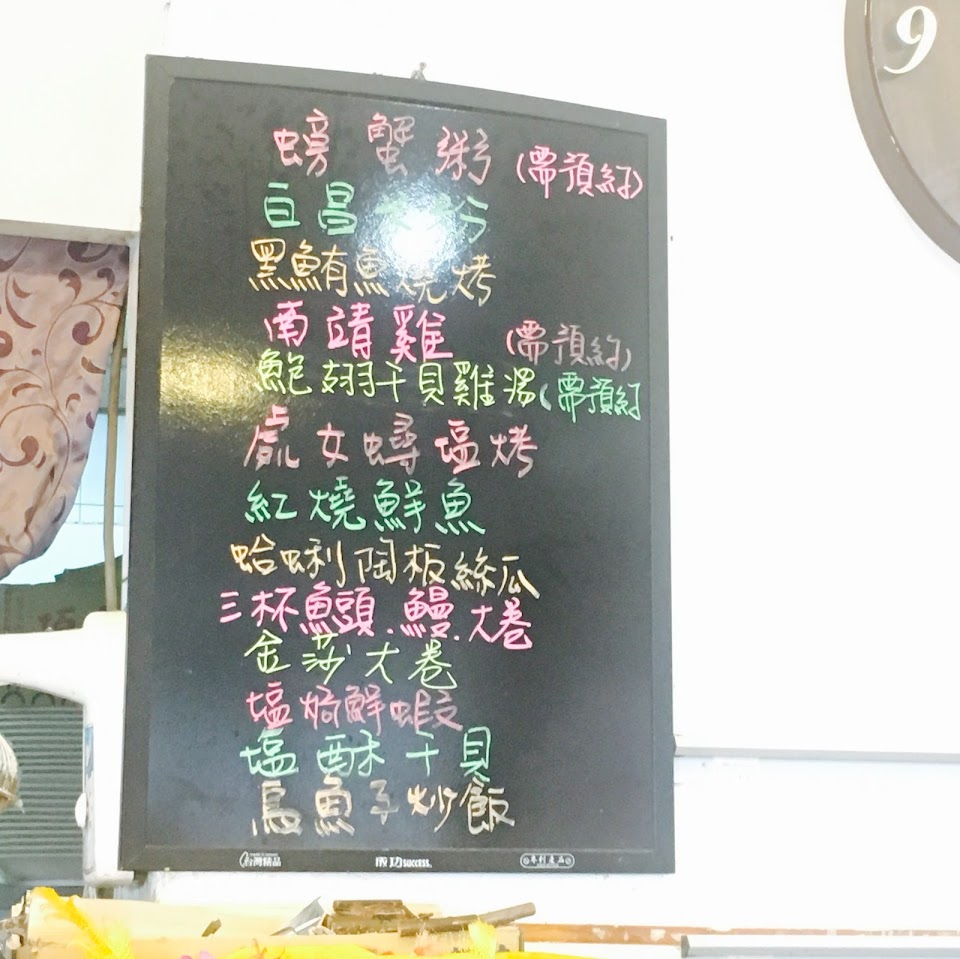 9
螃蟹粥(需預約)
白昌米粉
黑鮪魚燒烤
南靖雞(需預約)
鮑翅干貝雞湯(需預約
處女蟳塩烤
紅燒鮮魚
蛤蜊陶板絲瓜
三杯魚頭.鰻.大卷
金莎大卷
塩焗鮮蝦
塩酥干貝
烏魚子炒飯
台灣精品 成功success. 專利產品